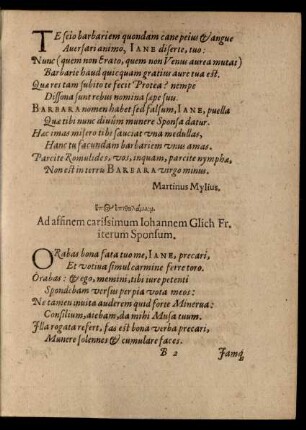 TE scio barbariem quondam cane peius & angue
Aversari animo, IANE diserte, tuo:
Nunc (quem non Erato, quem non Venus aurea mutas)
Barbarie haud quicquam gratius aure tua est.
Qua res tam subito te fecit Protea? nempe
Dissona sunt rebus nomina sæpe suis.
BARBARA nomen habet sed falsum, IANE, puella
Quæ tibi nunc divûm munere Sponsa datur.
Hæc imas misero tibi sauciat vna medullas,
Hanc tu facundam barbariem vnus amas.
Parcite Romulides, vos, inquam, parcite nymphæ,
Non est in terra BARBARA virgo minus.
Martinus Mylius.
Ad affinem carissimum Iohannem Glich Fr.
iterum Sponsum.
ORabas bona fata tuo me, IANE, precari,
Et votiva simul carmine ferre toro.
Orabas: & ego, memini, tibi iure petenti
Spondebam versu perpia vota meos:
Ne tamen invita auderem quid forte Minerva:
Consilium, aiebam, da mihi Musa tuum.
Illa rogata refert, fas est bona verba precari,
Munere solennes & cumulare faces.
B 2 Iamq́